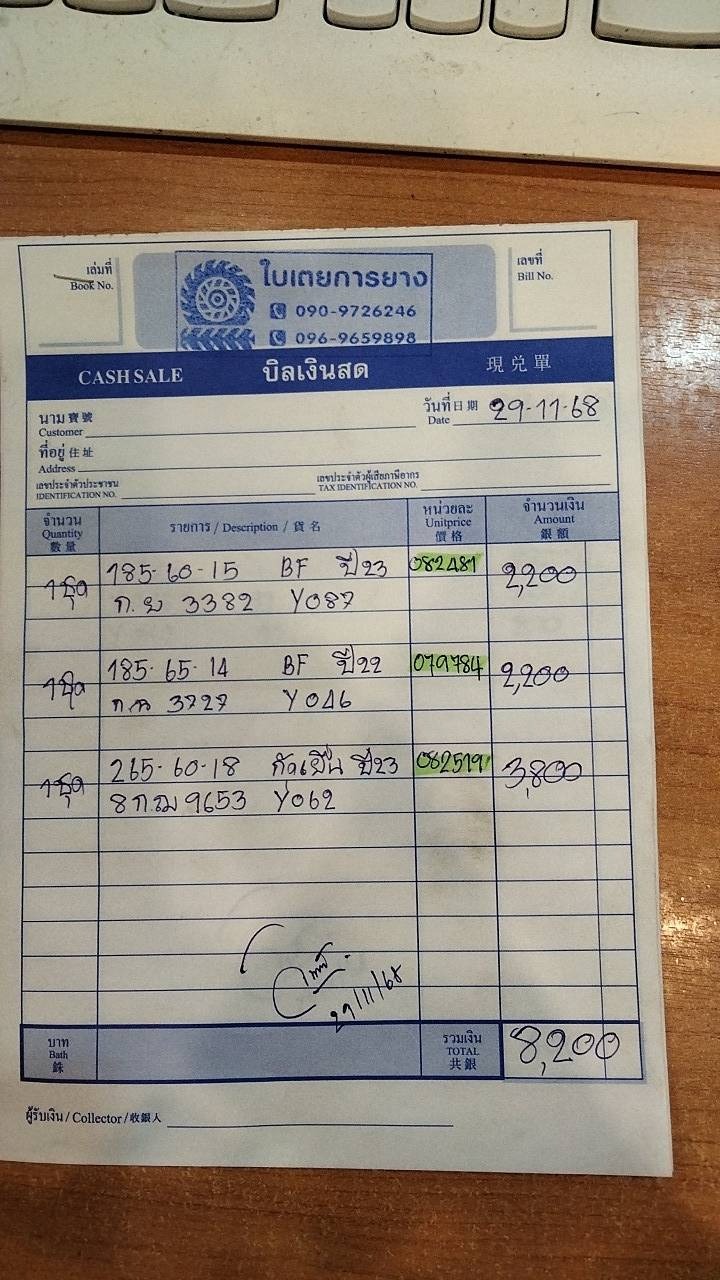 เล่มที่
Book No.
ใบเตยการยาง
090-9726246
096-9659898
เลขที่
Bill No.
CASH SALE บิลเงินสด 現兌單
นาม 寶號
Customer
วันที่ 日期 29-11-68
Date
ที่อยู่ 住址
Address
เลขประจำตัวประชาชน
IDENTIFICATION NO.
เลขประจำตัวผู้เสียภาษีอากร
TAX IDENTIFICATION NO.
จำนวน
Quantity
數量
รายการ / Description / 貨名
หน่วยละ
Unitprice
價格
จำนวนเงิน
Amount
銀額
1ชุด 185-60-15 BF ปี23 082481 2,200
3382 Y087
1ชุด 185-65-14 BF ปี22 079784 2,200
3727 Y046
1ชุด 265-60-18 ปี23 082519 3,800
8กฌ 9653 Y062
29/11/68
บาท
Bath
銖
รวมเงิน
TOTAL
共銀
8,200
ผู้รับเงิน / Collector / 收銀人